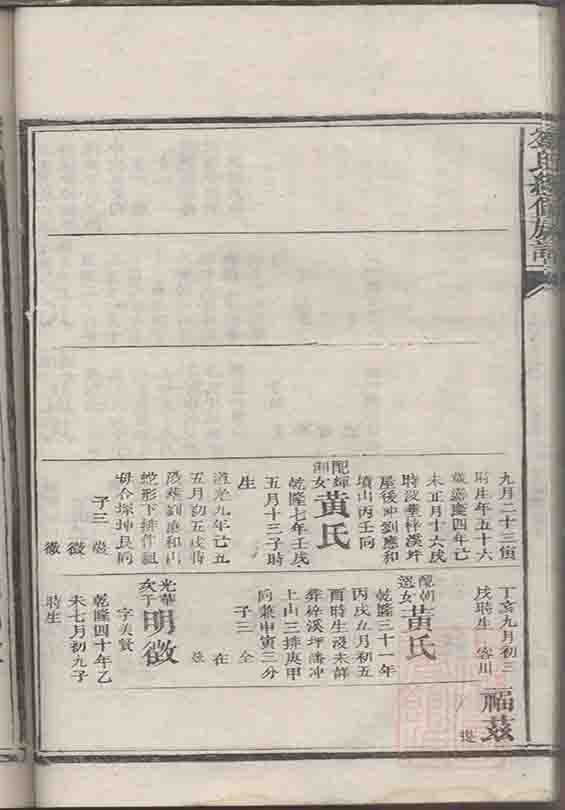 氏續修族譜
九月二十三寅
時生年五十六
歲嘉慶四年己
未正月十六戌
時沒葬梓溪坪
屋後冲劉應和
墳山丙壬向
配輝
卿女
黃氏
乾隆七年壬戌
五月十三子時
生
道光九年己丑
五月初五戌時
沒葬劉應和山
蛇形下排件祖
母合塚坤艮向
子三
徽
丁亥九月初三
戌時生
福茲
配朝
選女
黃氏
乾隆三十一年
丙戌五月初五
酉時生沒未詳
葬梓溪坪潘冲
上山三排庚甲
向兼申寅三分
子三
全
在
光華
次子
明徵
字美賢
乾隆四十年乙
未七月初九子
時生